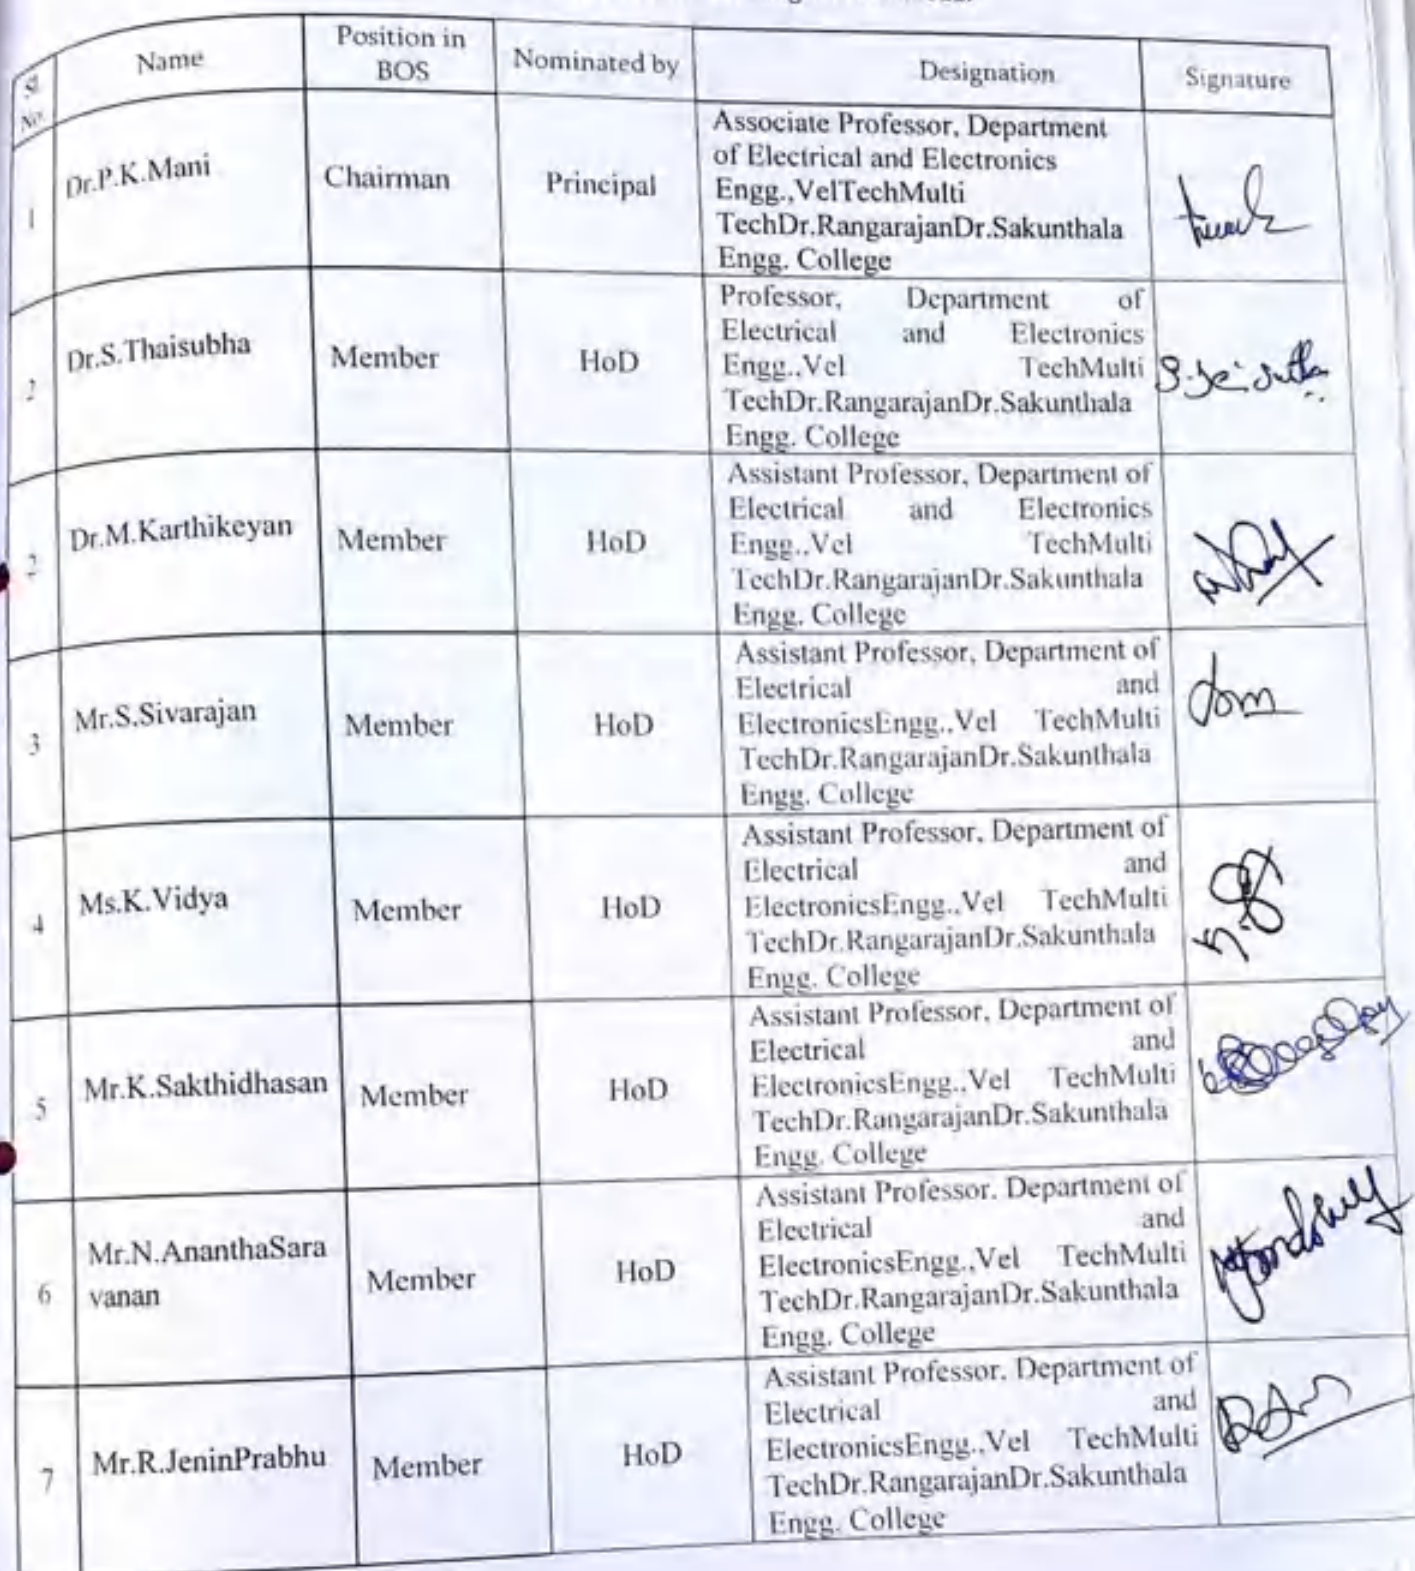 Sl. No.
Name
Position in
BOS
Nominated by
Designation
Signature
1
Dr.P.K.Mani
Chairman
Principal
Associate Professor, Department
of Electrical and Electronics
Engg.,VelTechMulti
TechDr.RangarajanDr.Sakunthala
Engg. College
2
Dr.S.Thaisubha
Member
HoD
Professor, Department of
Electrical and Electronics
Engg.,Vel TechMulti
TechDr.RangarajanDr.Sakunthala
Engg. College
2
Dr.M.Karthikeyan
Member
HoD
Assistant Professor, Department of
Electrical and Electronics
Engg.,Vel TechMulti
TechDr.RangarajanDr.Sakunthala
Engg. College
3
Mr.S.Sivarajan
Member
HoD
Assistant Professor, Department of
Electrical and
ElectronicsEngg.,Vel TechMulti
TechDr.RangarajanDr.Sakunthala
Engg. College
4
Ms.K.Vidya
Member
HoD
Assistant Professor, Department of
Electrical and
ElectronicsEngg.,Vel TechMulti
TechDr.RangarajanDr.Sakunthala
Engg. College
5
Mr.K.Sakthidhasan
Member
HoD
Assistant Professor, Department of
Electrical and
ElectronicsEngg.,Vel TechMulti
TechDr.RangarajanDr.Sakunthala
Engg. College
6
Mr.N.AnanthaSara
vanan
Member
HoD
Assistant Professor, Department of
Electrical and
ElectronicsEngg.,Vel TechMulti
TechDr.RangarajanDr.Sakunthala
Engg. College
7
Mr.R.JeninPrabhu
Member
HoD
Assistant Professor, Department of
Electrical and
ElectronicsEngg.,Vel TechMulti
TechDr.RangarajanDr.Sakunthala
Engg. College